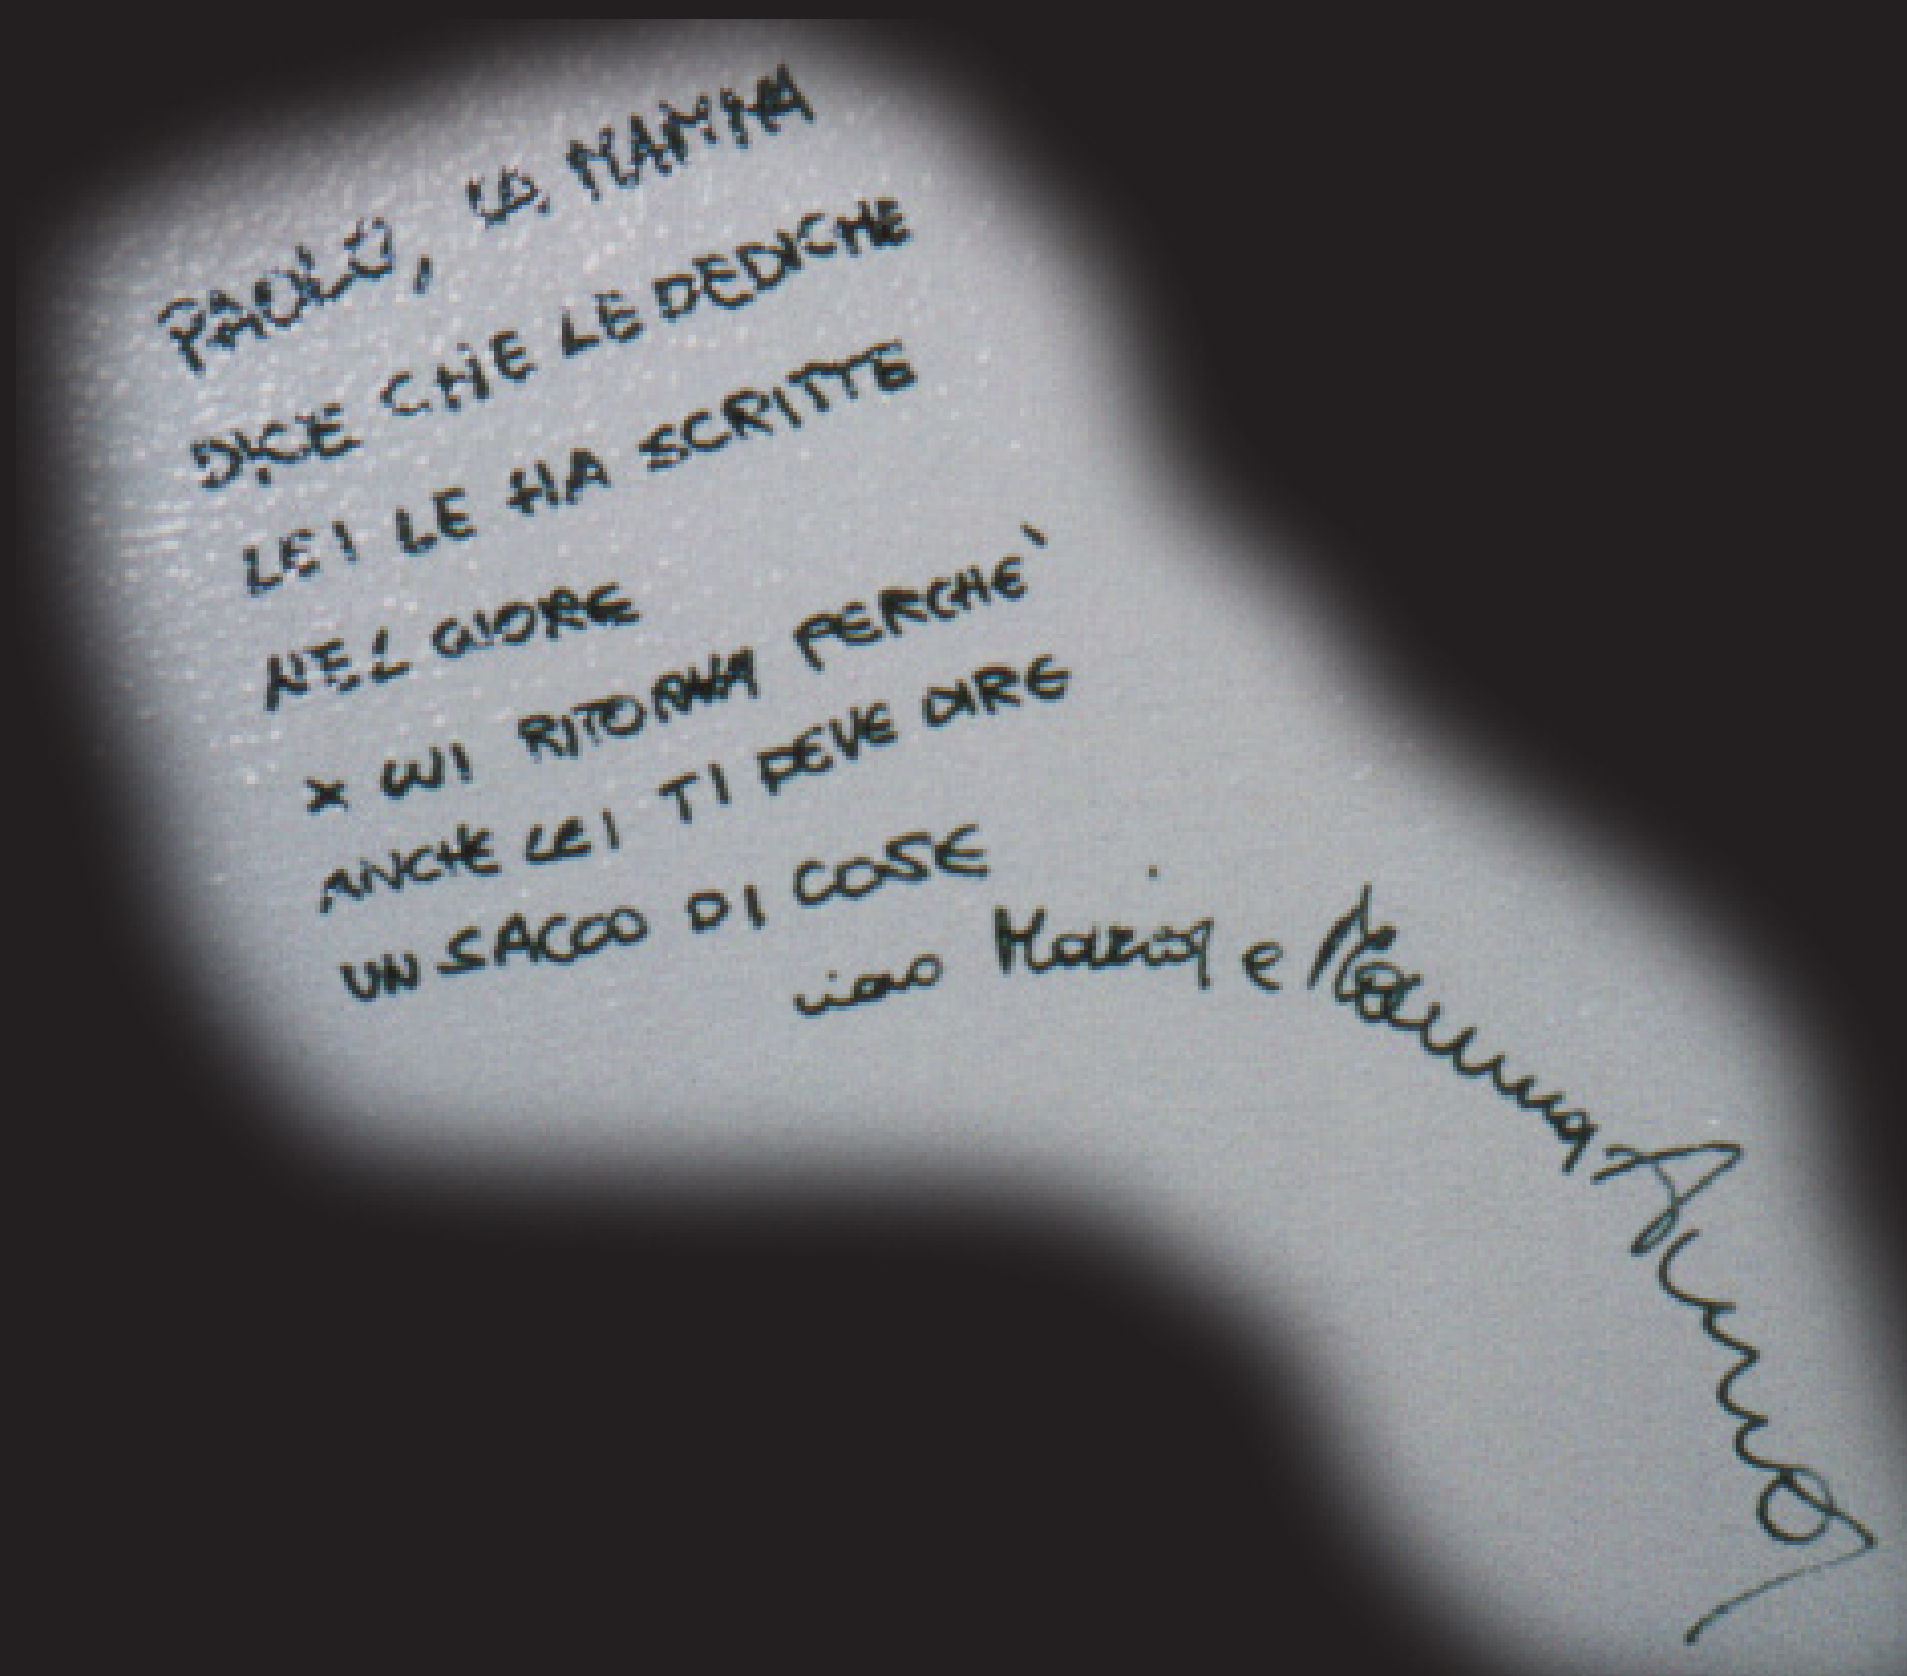 PAOLO, LA MAMMA
DICE CHE LE DEDICHE
LEI LE HA SCRITTE
NEL CUORE
X CUI RITORNA PERCHE'
ANCHE LEI TI DEVE DIRE
UN SACCO DI COSE
ciao Maria e Mamma